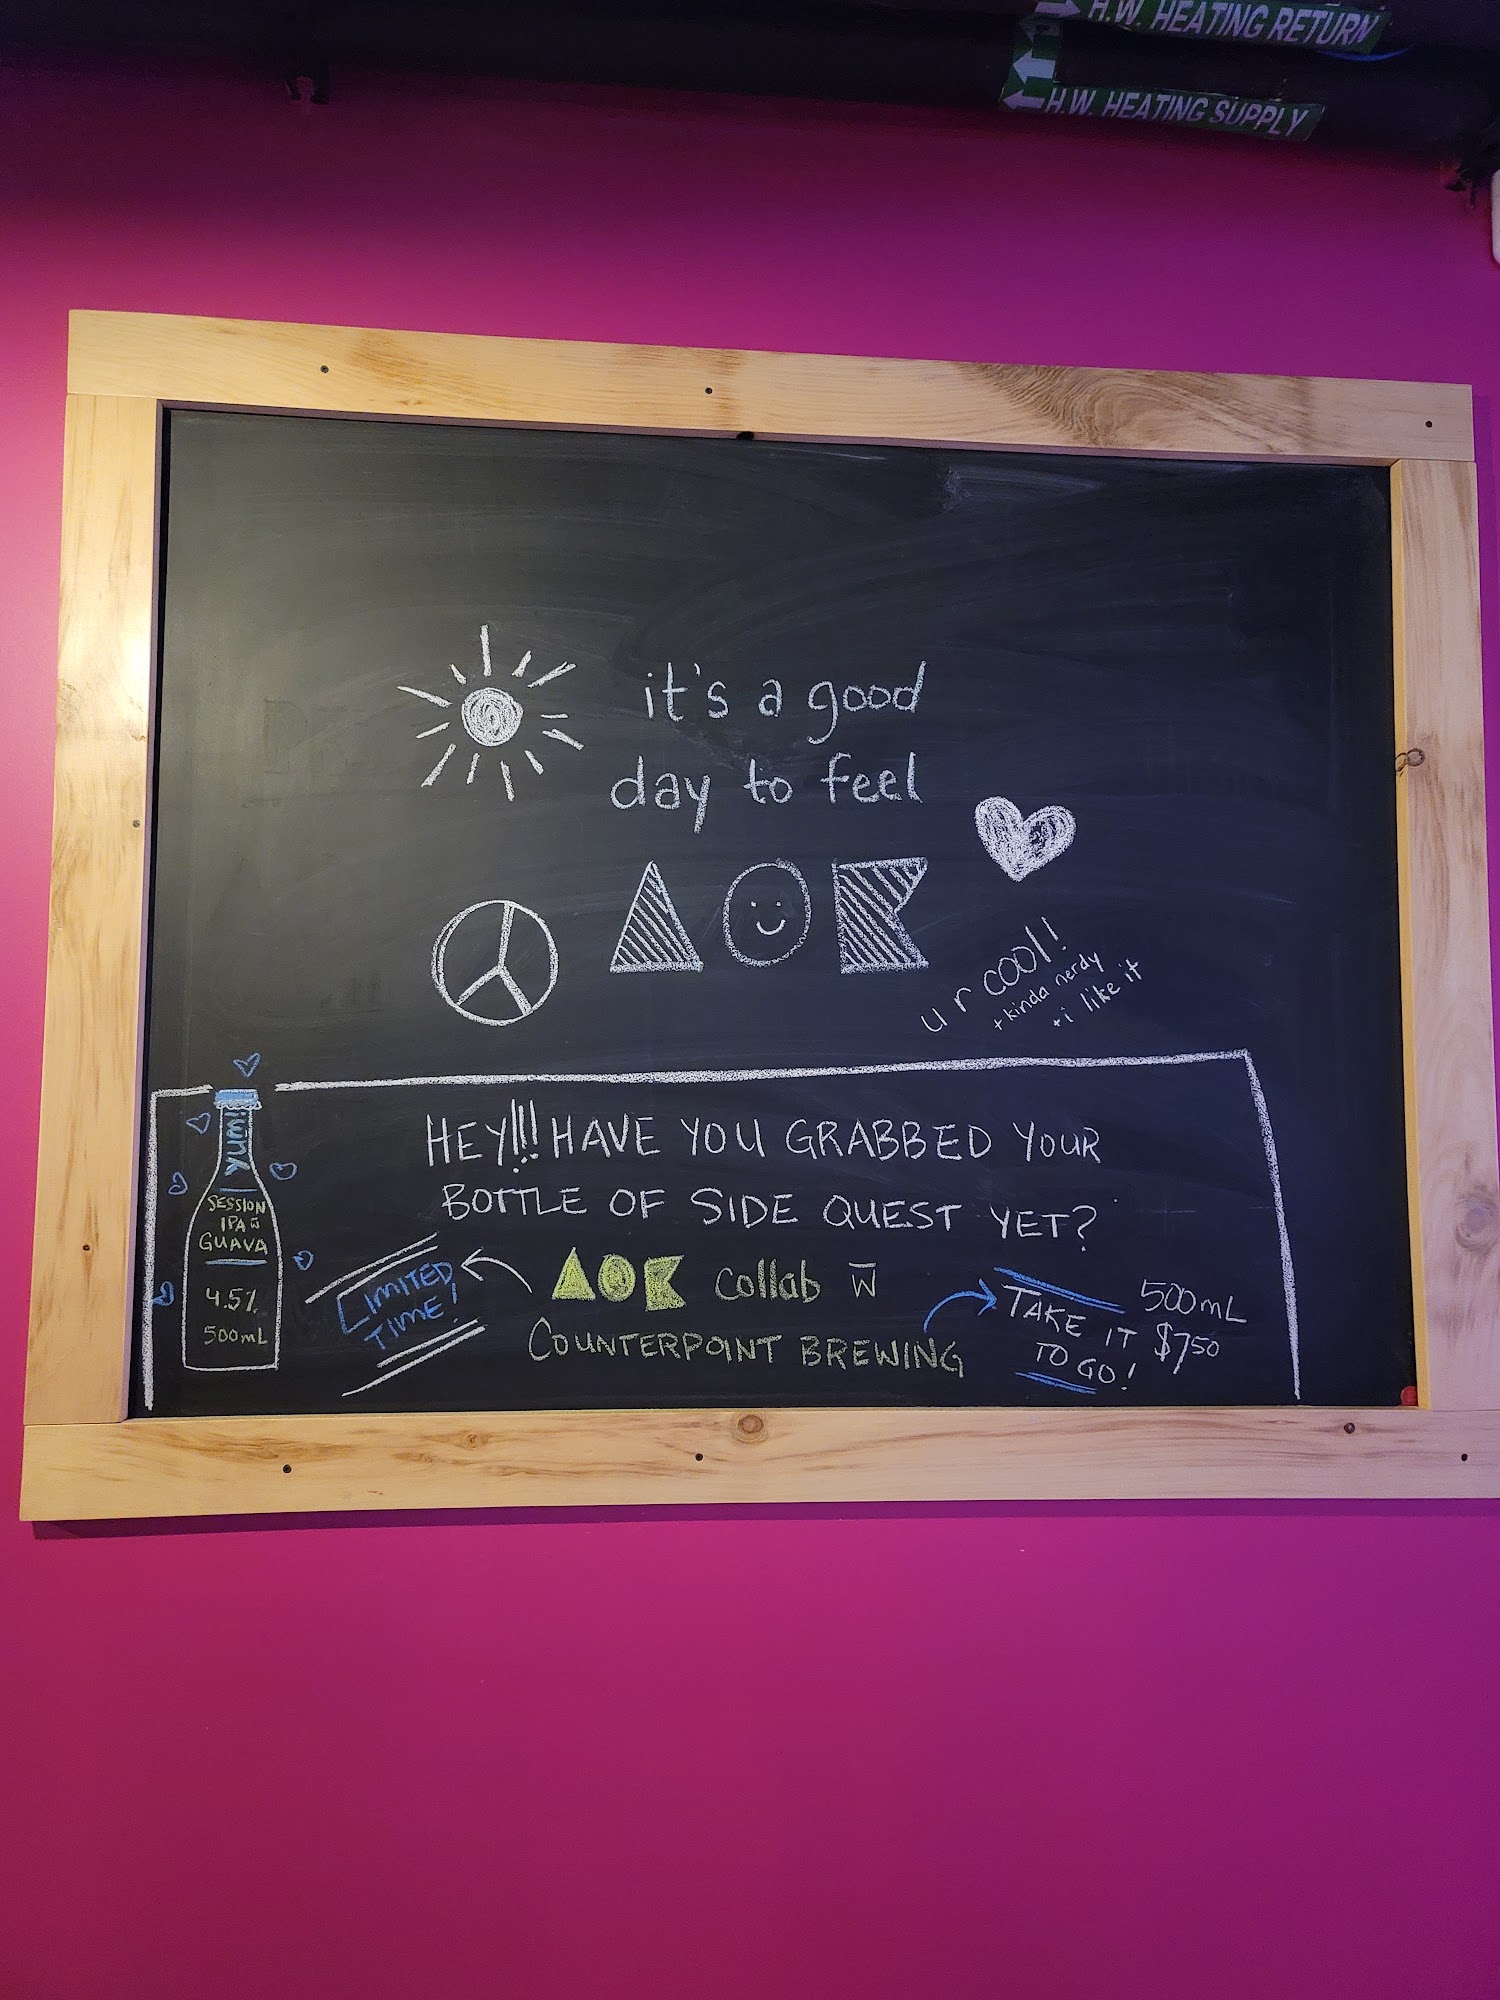 H.W. HEATING RETURN
H.W. HEATING SUPPLY
it's a good
day to feel
AOK
u r cool!
+ kinda nerdy
+ i like it
HEY!!! HAVE YOU GRABBED YOUR
BOTTLE OF SIDE QUEST YET?
AOK collab w̅
COUNTERPOINT BREWING
LIMITED
TIME!
TAKE IT
TO GO!
500mL
$7.50
SESSION
IPA w̅
GUAVA
4.5%
500mL